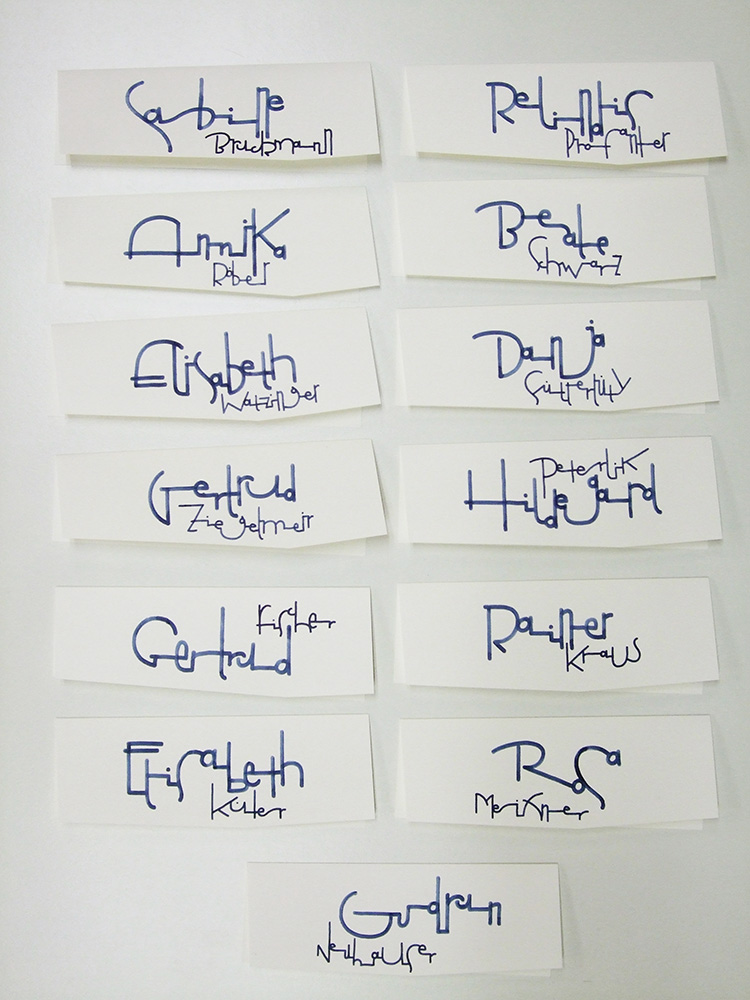 Sabine
Bruckmann
Relindis
Profanter
Annika
Röbel
Beate
Schwarz
Elisabeth
Watzinger
Danja
Gertrud
Ziegelmeir
Peterlik
Hildegard
Fischer
Gertrud
Rainer
Kraus
Elisabeth
Küter
Rosa
Gudrun
Neuhauser